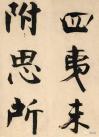 四夷未
附思所